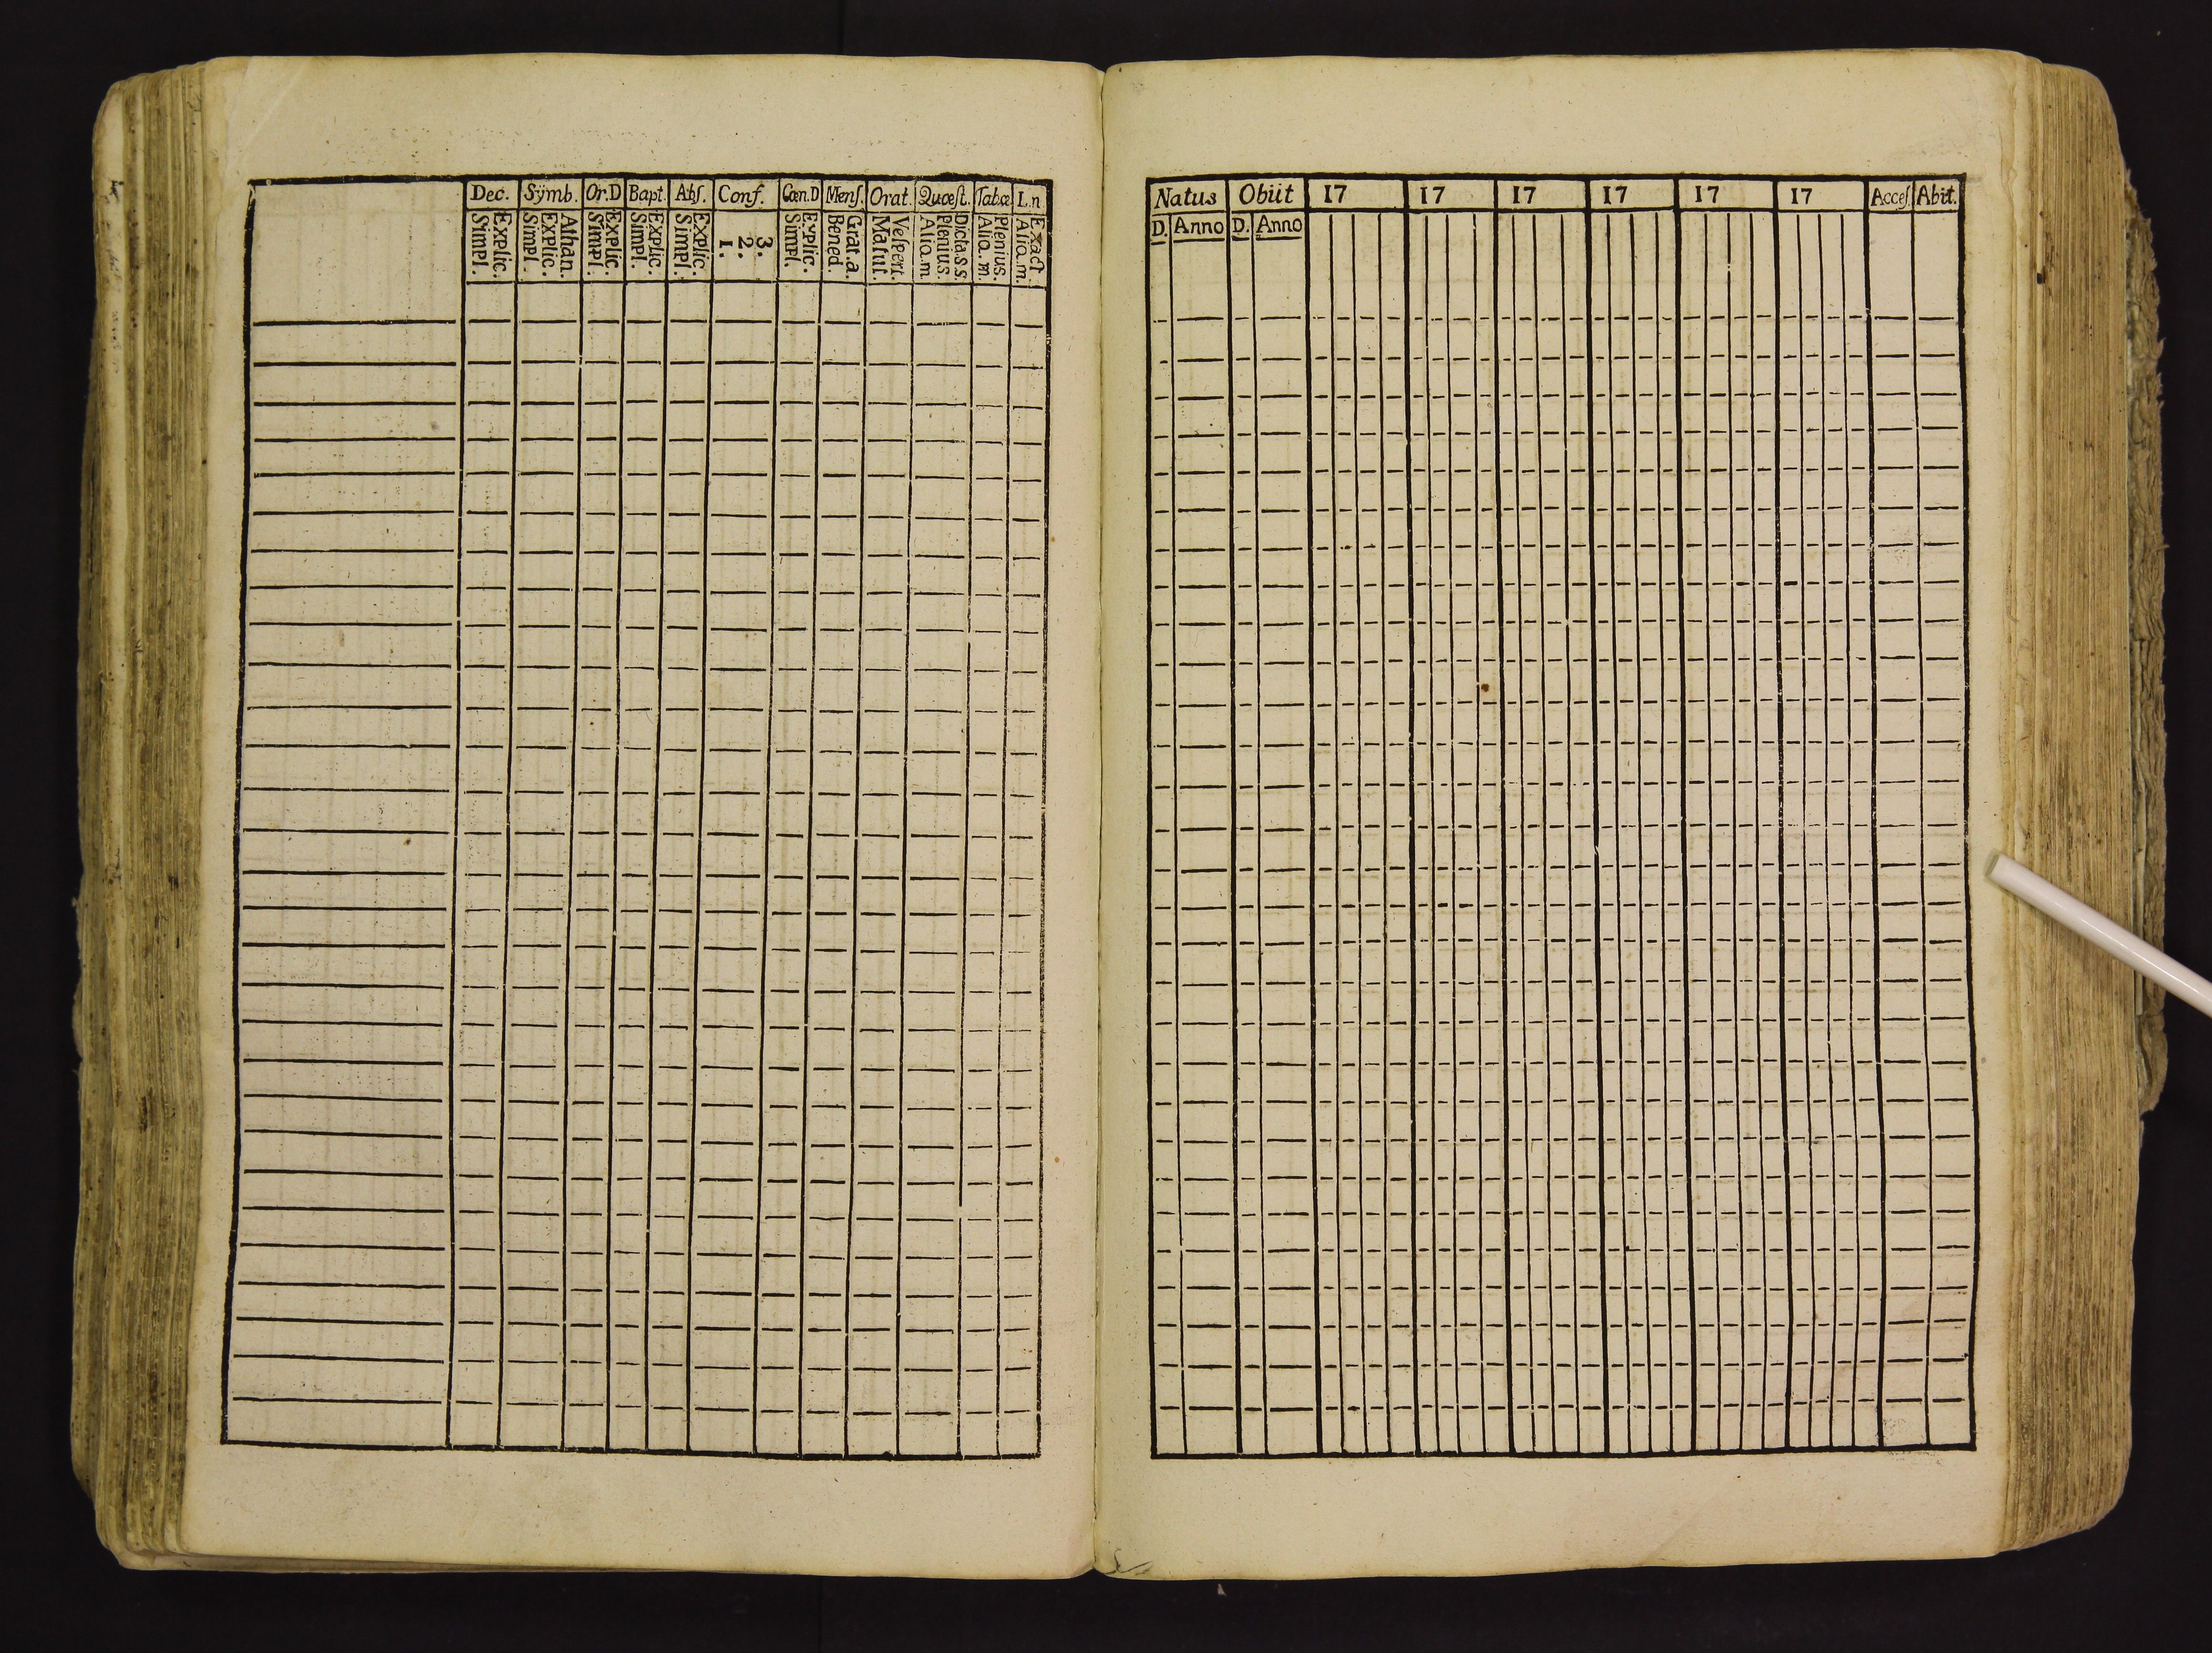 Dec. Sÿmb. Or.D Bapt. Abſ. Conf. Cœn.D Menſ. Orat. Quœſt. Tab.œ L.n
Simpl. Explic. Simpl. Explic. Athan. Simpl. Explic. Simpl. Explic. Simpl. Explic. 1. 2. 3. Simpl. Explic. Bened. Grat.a. Matut. Veſpert. Aliq.m. Plenius. Dicta.s.s. Aliq.m. Plenius. Aliq.m. Exact
Natus Obiit 17 17 17 17 17 17 Acceſ. Abit.
D. Anno D. Anno